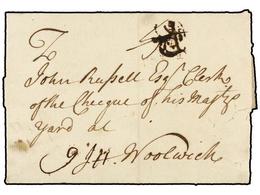 To
John Russell Esqr. Clerk
of the Cheque of his Majtys
Yard at
Woolwich